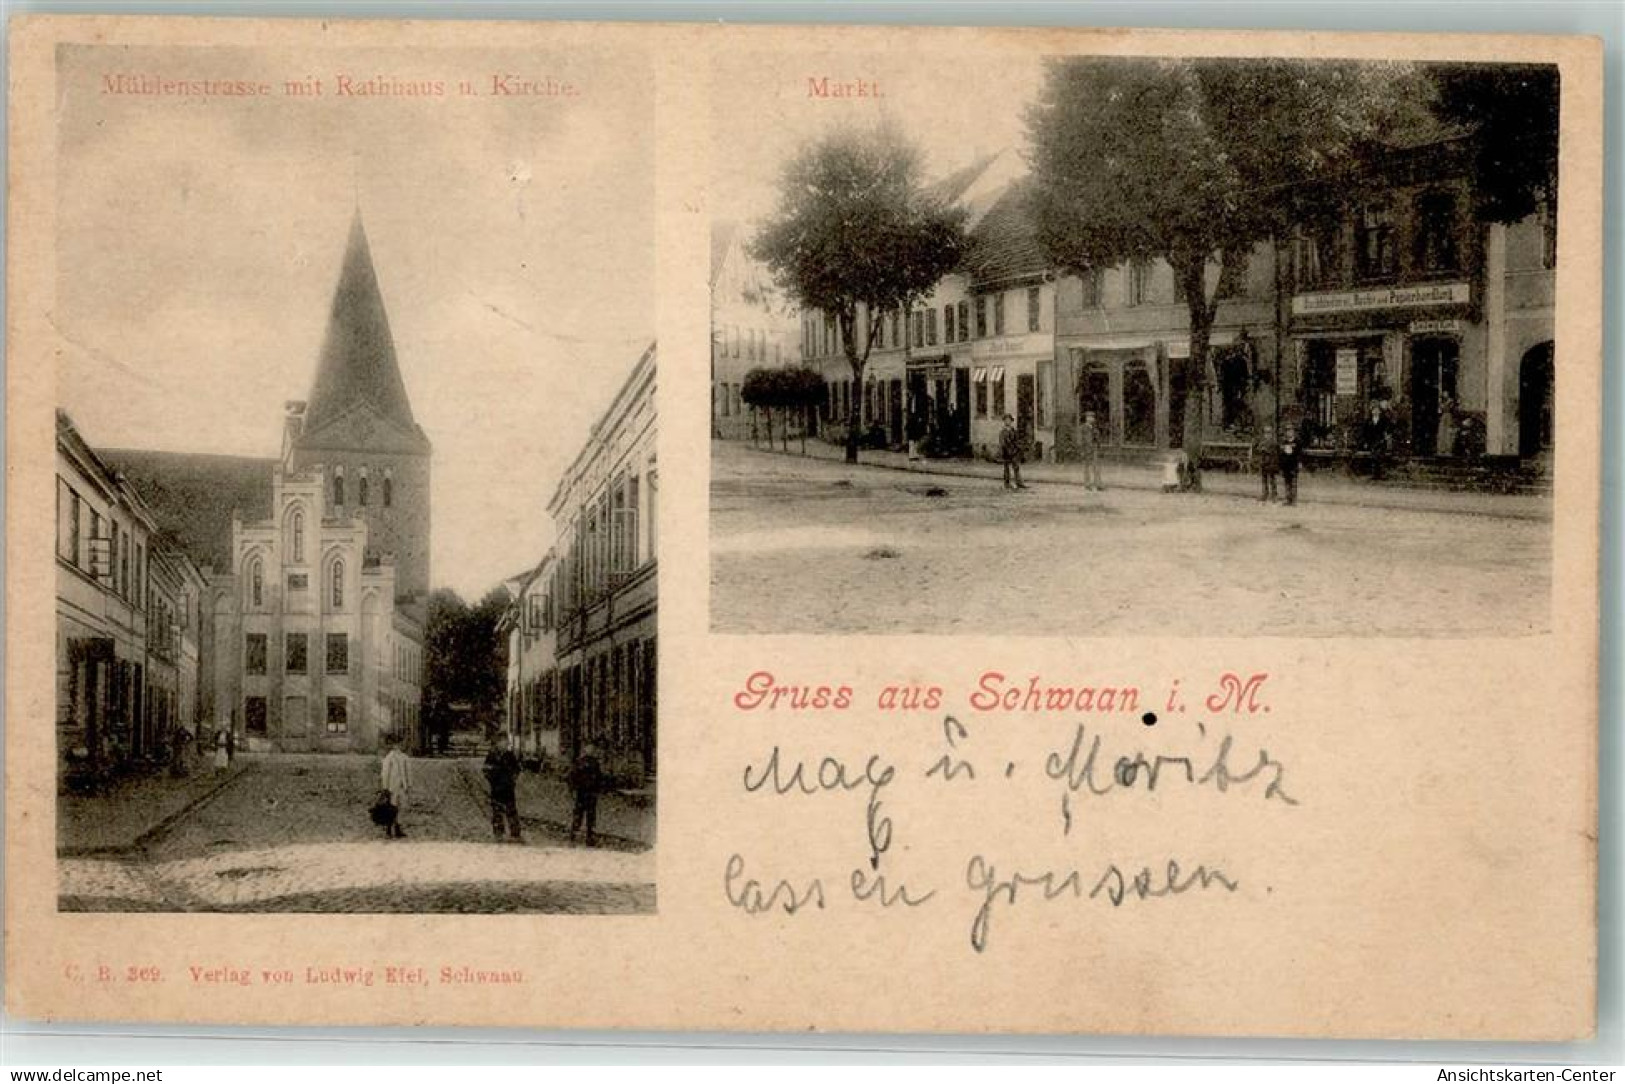 Mühlenstrasse mit Rathhaus u. Kirche.
Markt.
Buchbinderei, Buch- und Papierhandlung
Gruss aus Schwaan i. M.
Max u. Moritz
lassen grüssen.
C. B. 369. Verlag von Ludwig Kiel, Schwaan.
www.delcampe.net
Ansichtskarten-Center